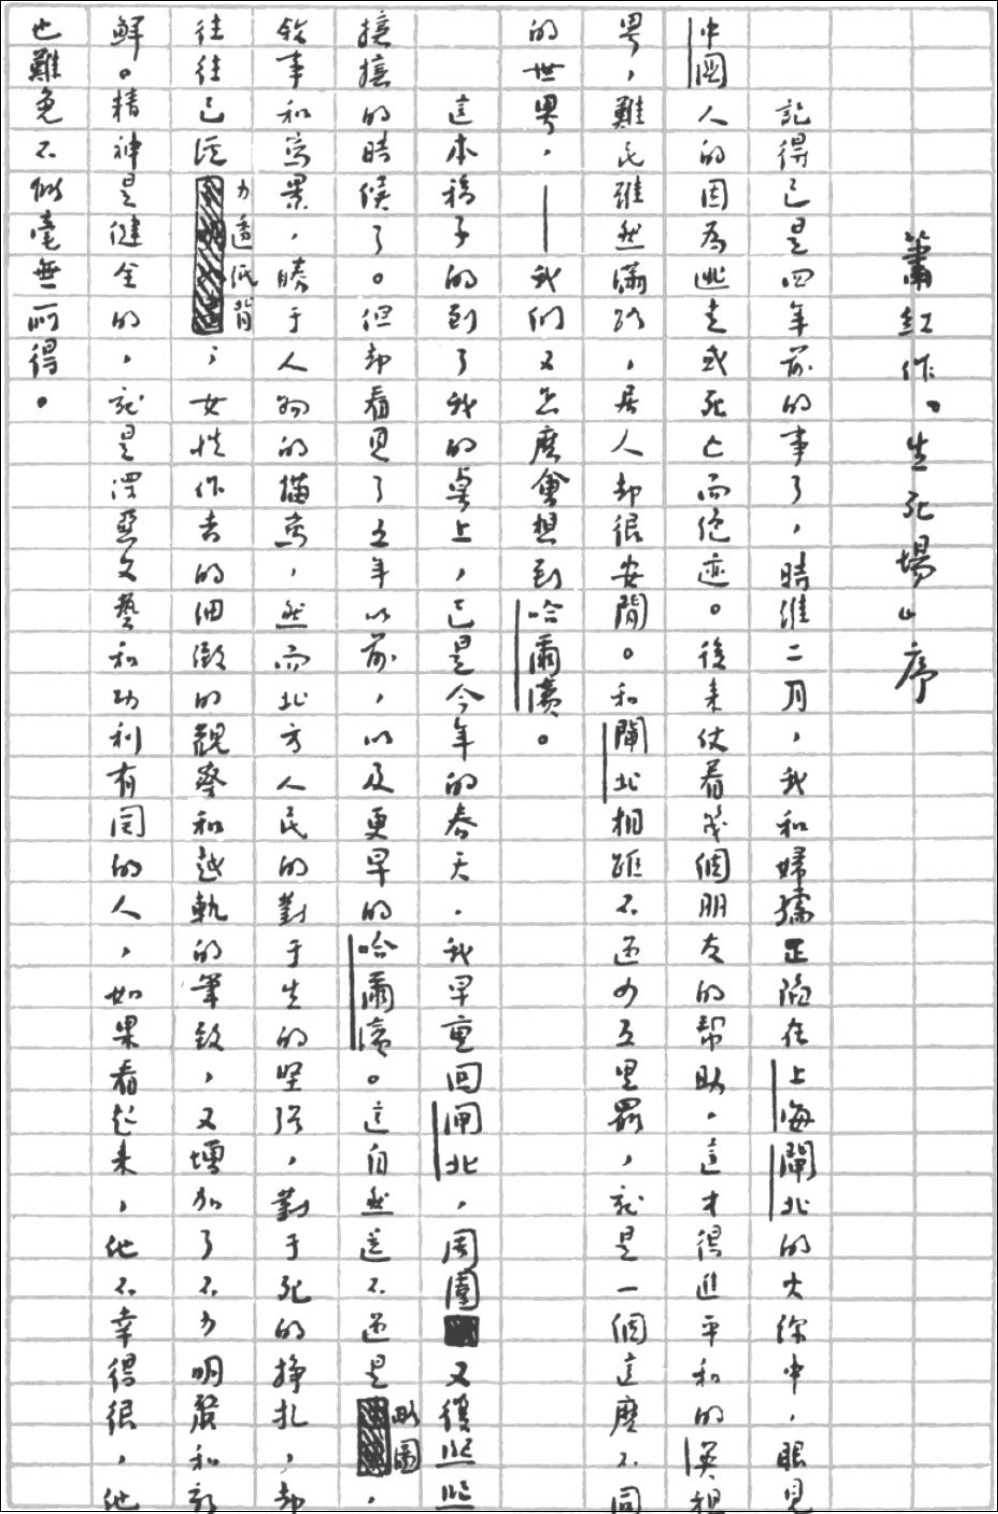 蕭紅作『生死場』序
記得已是四年前的事了，時維二月，我和婦孺正陷在上海閘北的火線中，眼見
中國人的因為逃走或死亡而絕迹。後來仗着幾個朋友的幫助，這才得進平和的英租
界，難民雖然滿路，居人却很安閒。和閘北相距不過四五里罷，就是一個這麼不同
的世界，——我們又怎麼會想到哈爾濱。
這本稿子的到了我的桌上，已是今年的春天，我早重回閘北，周圍又復熙熙
攘攘的時候了。但却看見了五年以前，以及更早的哈爾濱。這自然還不過是略圖，
敘事和寫景，勝于人物的描寫，然而北方人民的對于生的堅強，對于死的掙扎，却
往往已經力透紙背；女性作者的細緻的觀察和越軌的筆致，又增加了不少明麗和新
鮮。精神是健全的，就是深惡文藝和功利有關的人，如果看起來，他不幸得很，他
也難免不能毫無所得。